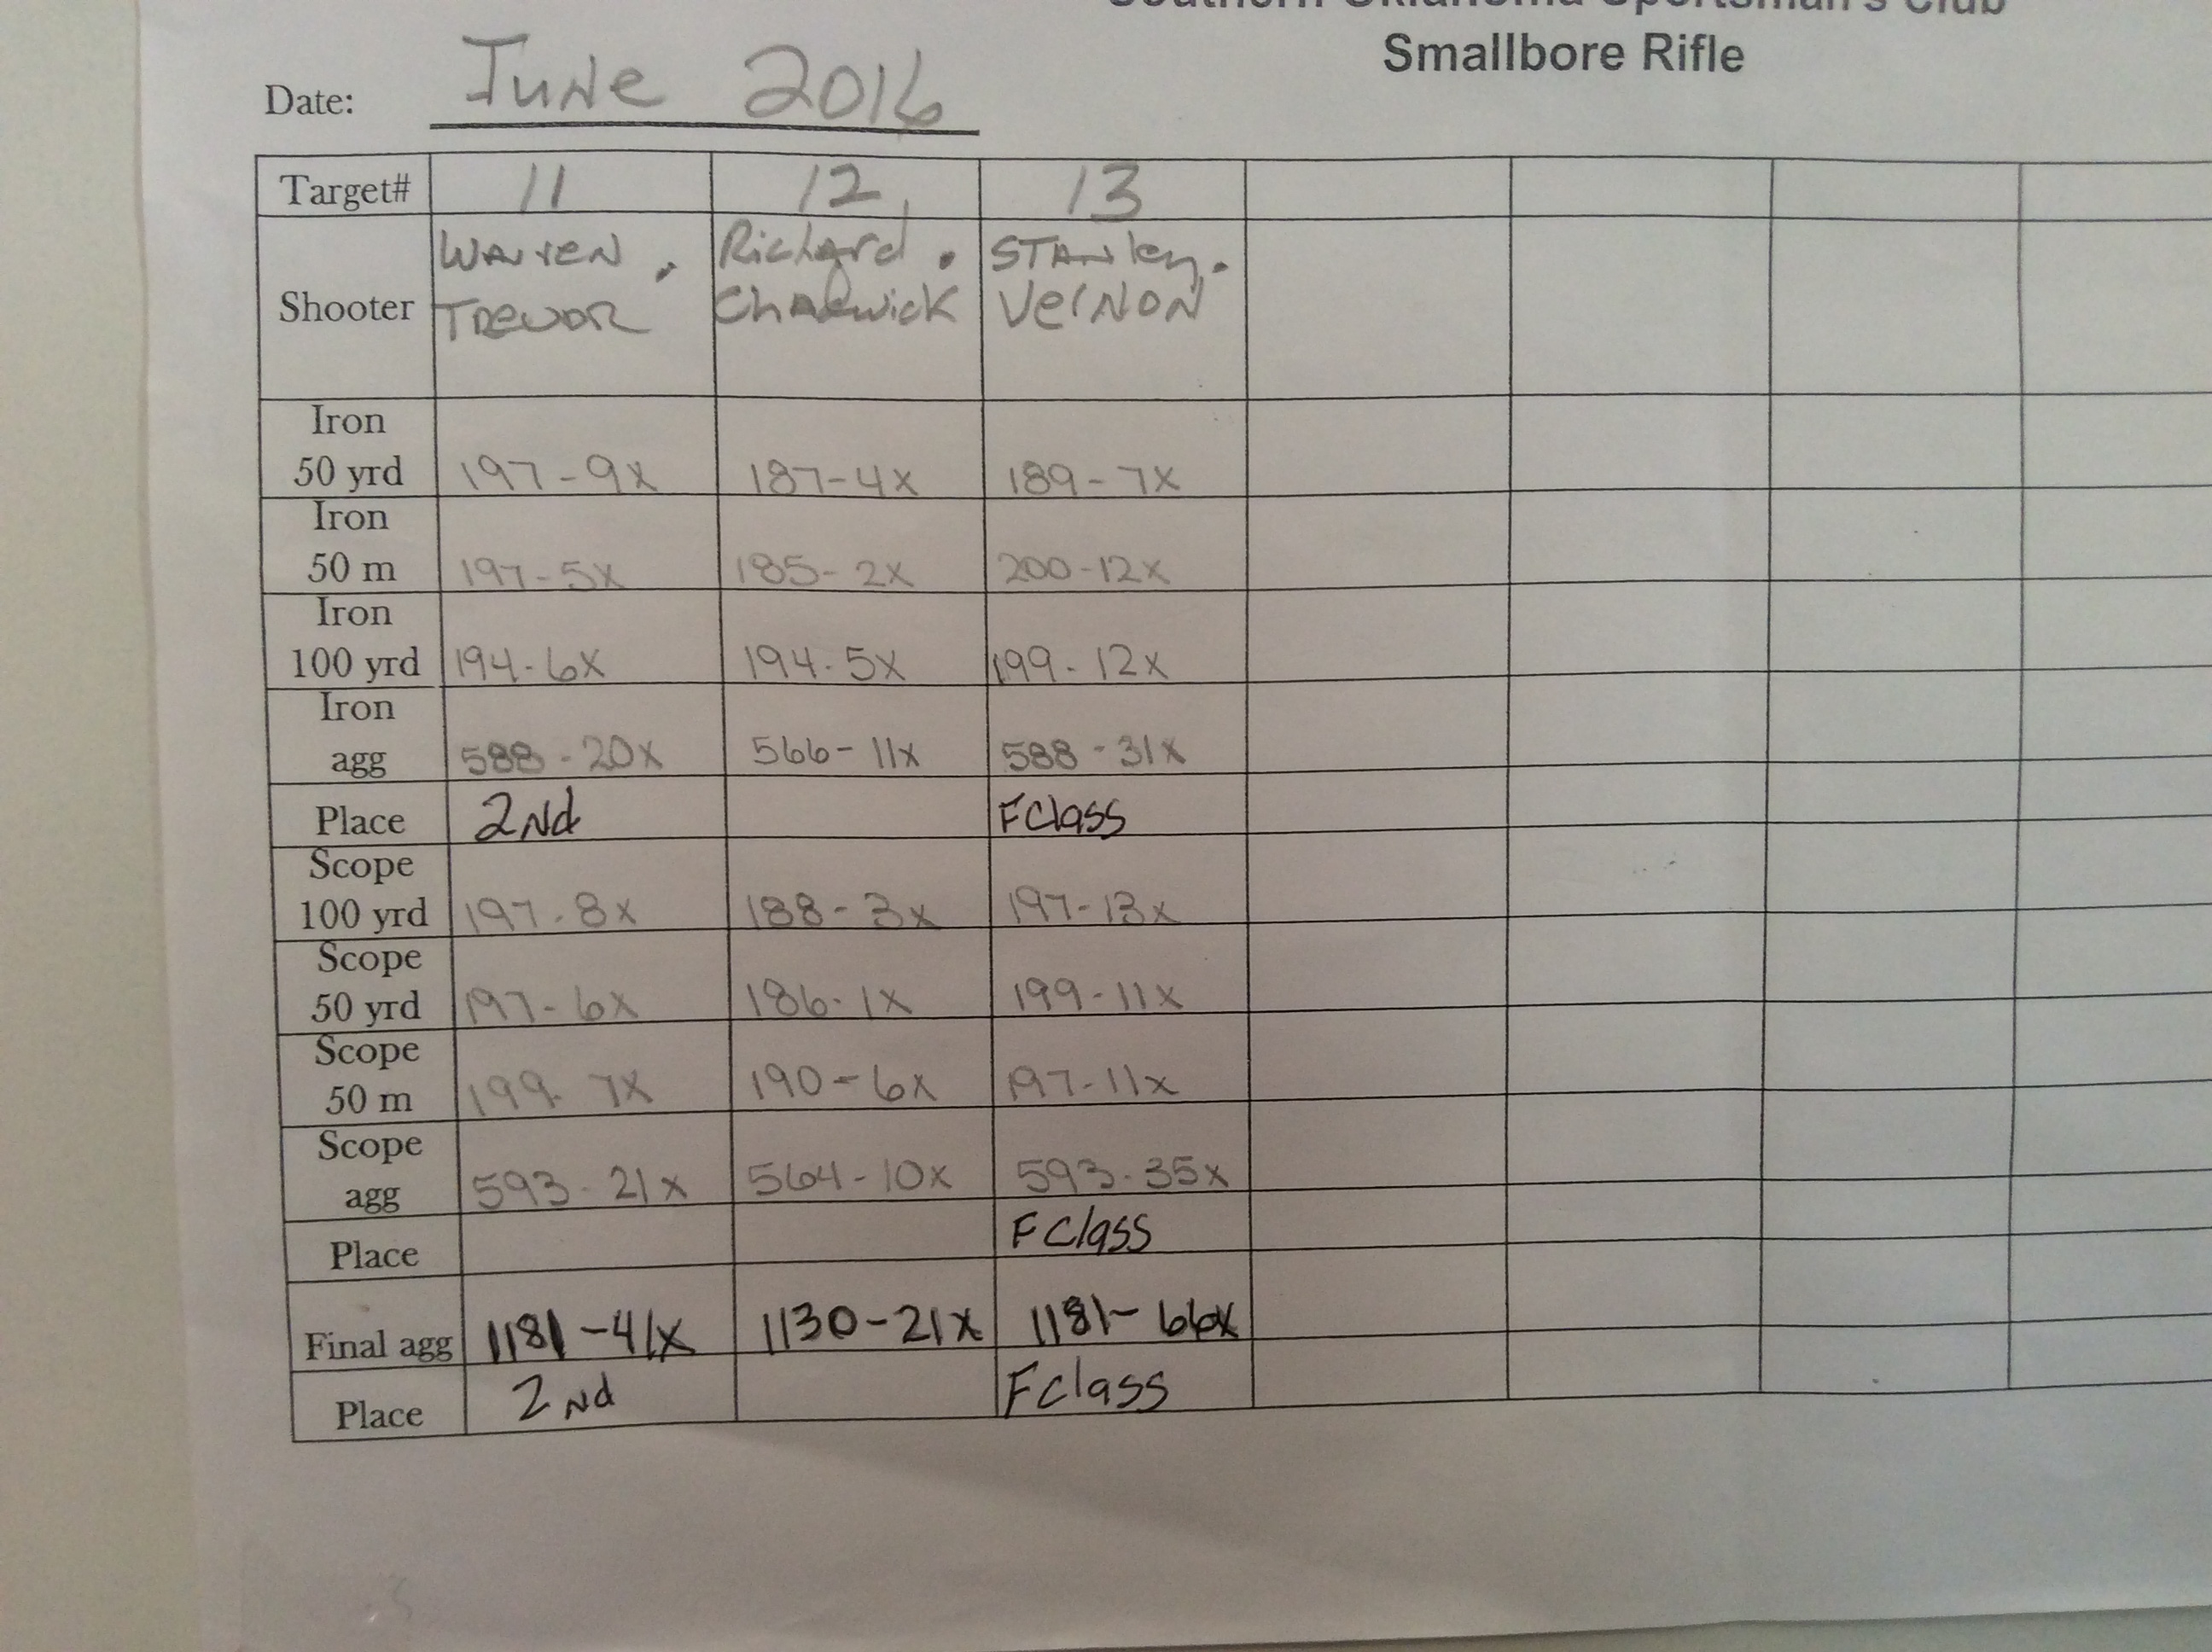 Southern Oklahoma Sportsman's Club
Smallbore Rifle
Date: June 2016
Target# 11 12 13
Shooter Warren. Trevor Richard. Chadwick Stanley. Vernon
Iron
50 yrd 197-9x 187-4x 189-7x
Iron
50 m 197-5x 185-2x 200-12x
Iron
100 yrd 194-6x 194-5x 199-12x
Iron
agg 588-20x 566-11x 588-31x
Place 2nd FClass
Scope
100 yrd 197-8x 188-3x 197-13x
Scope
50 yrd 197-6x 186-1x 199-11x
Scope
50 m 199-7x 190-6x 197-11x
Scope
agg 593-21x 564-10x 593-35x
Place F Class
Final agg 1181-41x 1130-21x 1181-66x
Place 2nd FClass